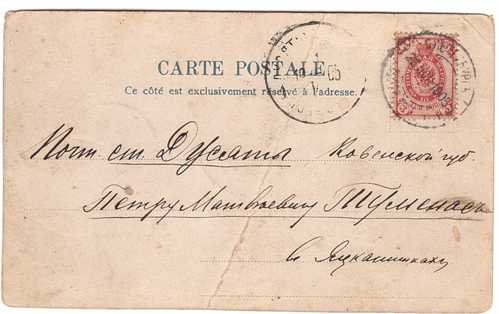 CARTE POSTALE
Ce côté est exclusivement réservé à l'adresse.
Почт. ст. Дусяты Ковенской губ.
Петру Матвѣевичу Туменасъ
в Яцканишках